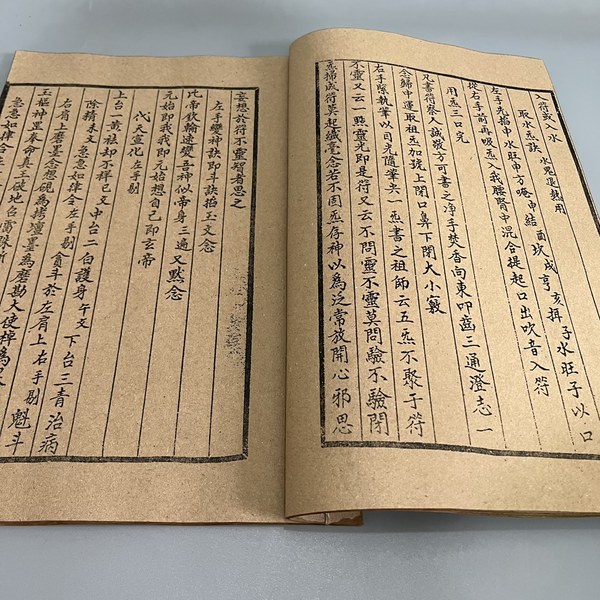 入符或入水
取水炁訣 水鬼退熱用
左手先掐申水旺申方唵申結酉坎戌亨亥拜子水旺子以口
從右手前再吸炁入我腰腎中混合提起口出吹音入符
用炁三口完
凡書符察人誠敬方可書之净手焚香向東叩齒三通澄志一
念歸中運取祖炁加提上閉口鼻下閉大小竅
右手除執筆以目光隨筆尖一炁書之祖師云五炁不聚于符
不靈又云一點靈光即是符又云不問靈不靈莫問驗不驗閉
炁掃成符莫起纖毫念若不固炁存神以爲泛常放開心邪思
妄想於符不靈習者思之
左手變神訣即手訣掐玉文念
北帝飲輪遠變吾神似帝身三遍又默念
元始即我我即元始想自己即玄帝
代天宣化左手剔
上台一黃祛却不祥巳文中台二白護身午文下台三青治病
除精未文急急如律令左手剔貪斗於左肩上右手剔魁斗
右肩上磨墨念想硯爲拷壇墨爲磨勘大使棹爲
玉樞神罡辰命真王破地台雷
急急如律令